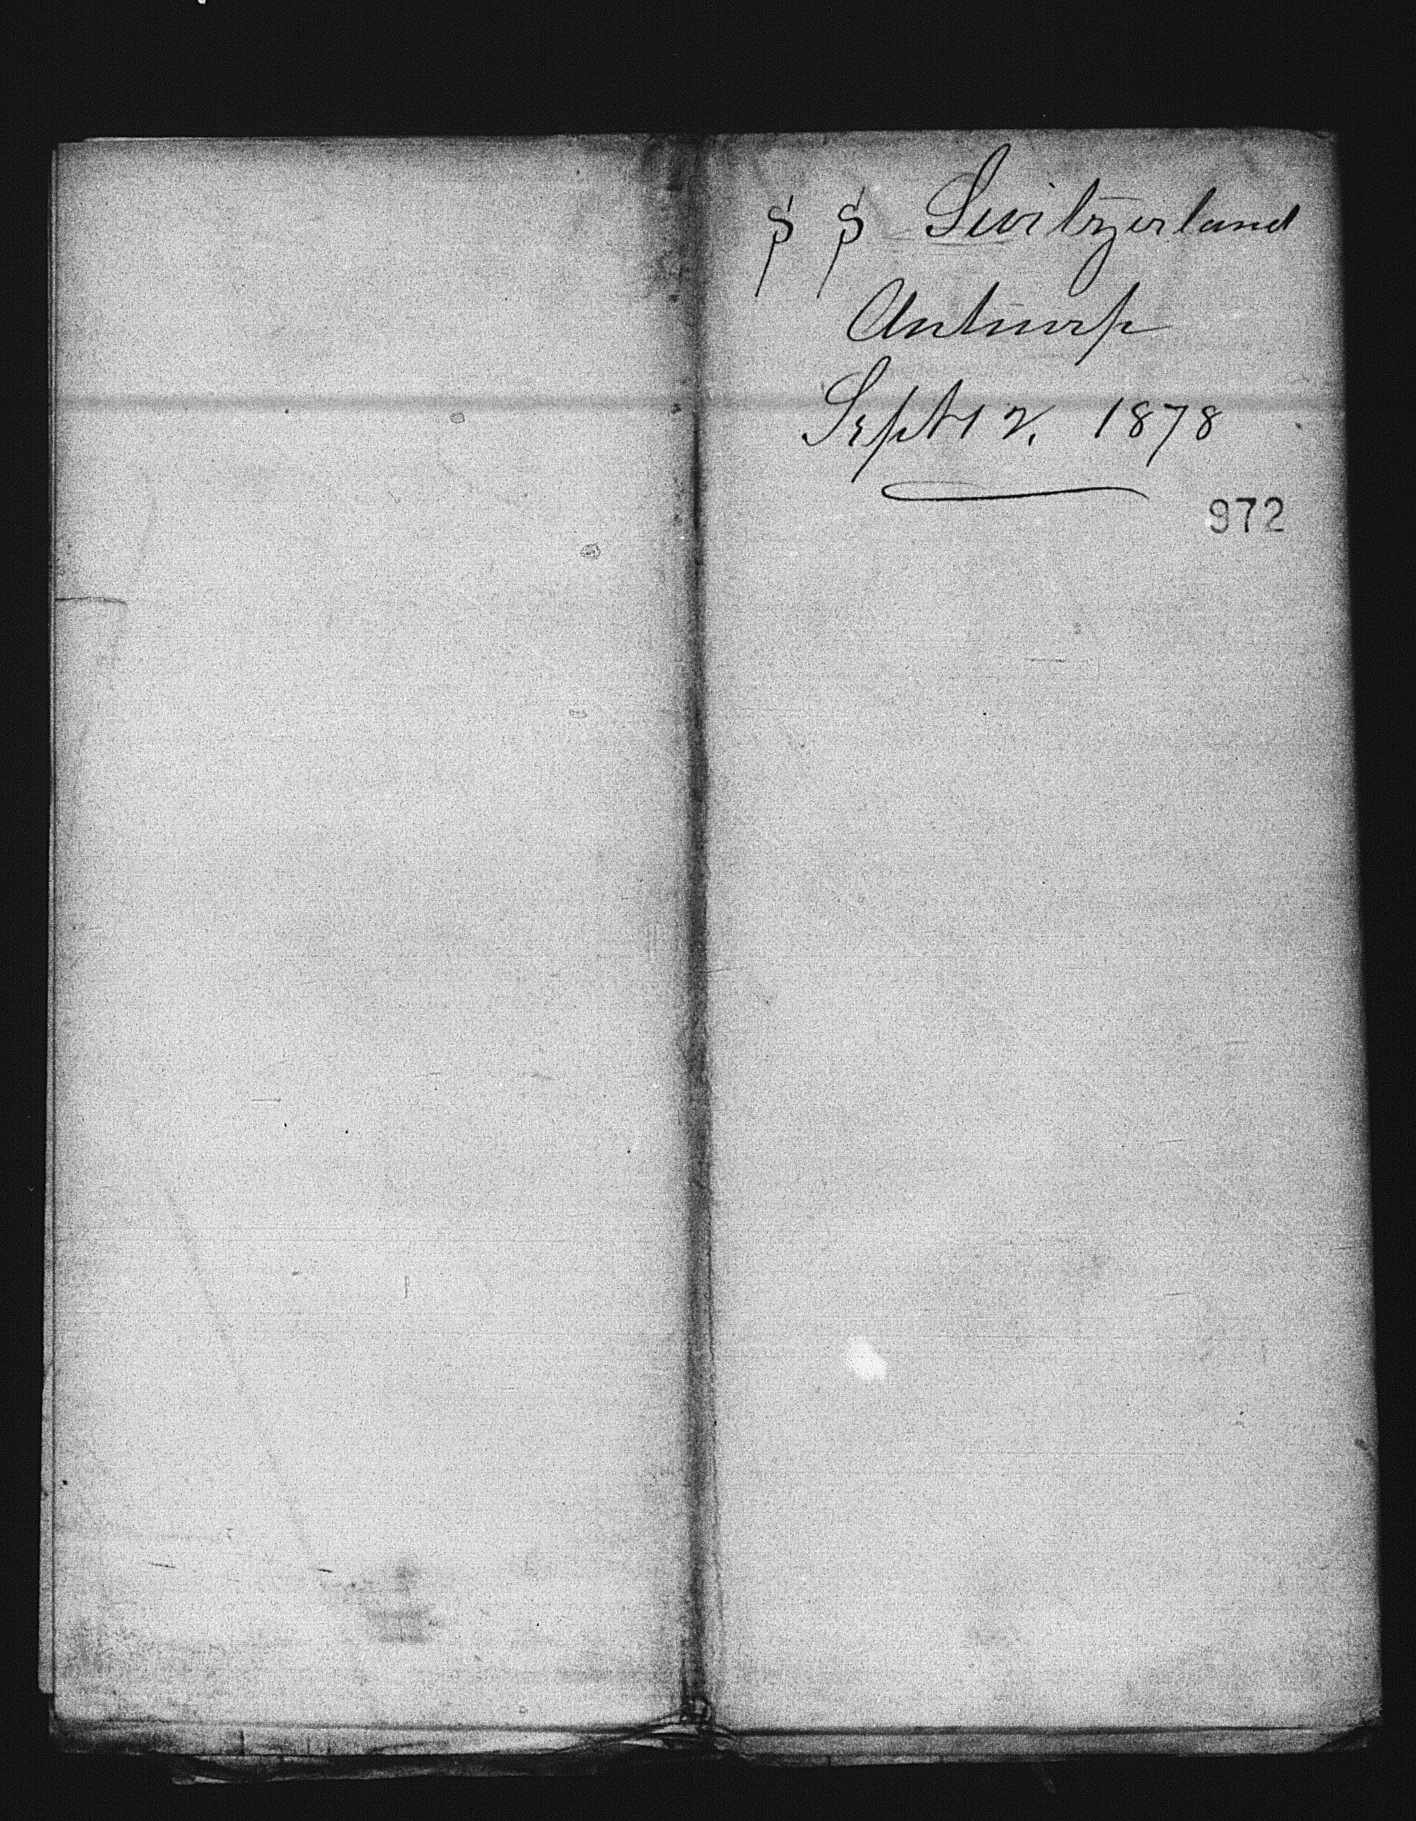 S S Switzerland
Antwerp
Sept 12, 1878
972